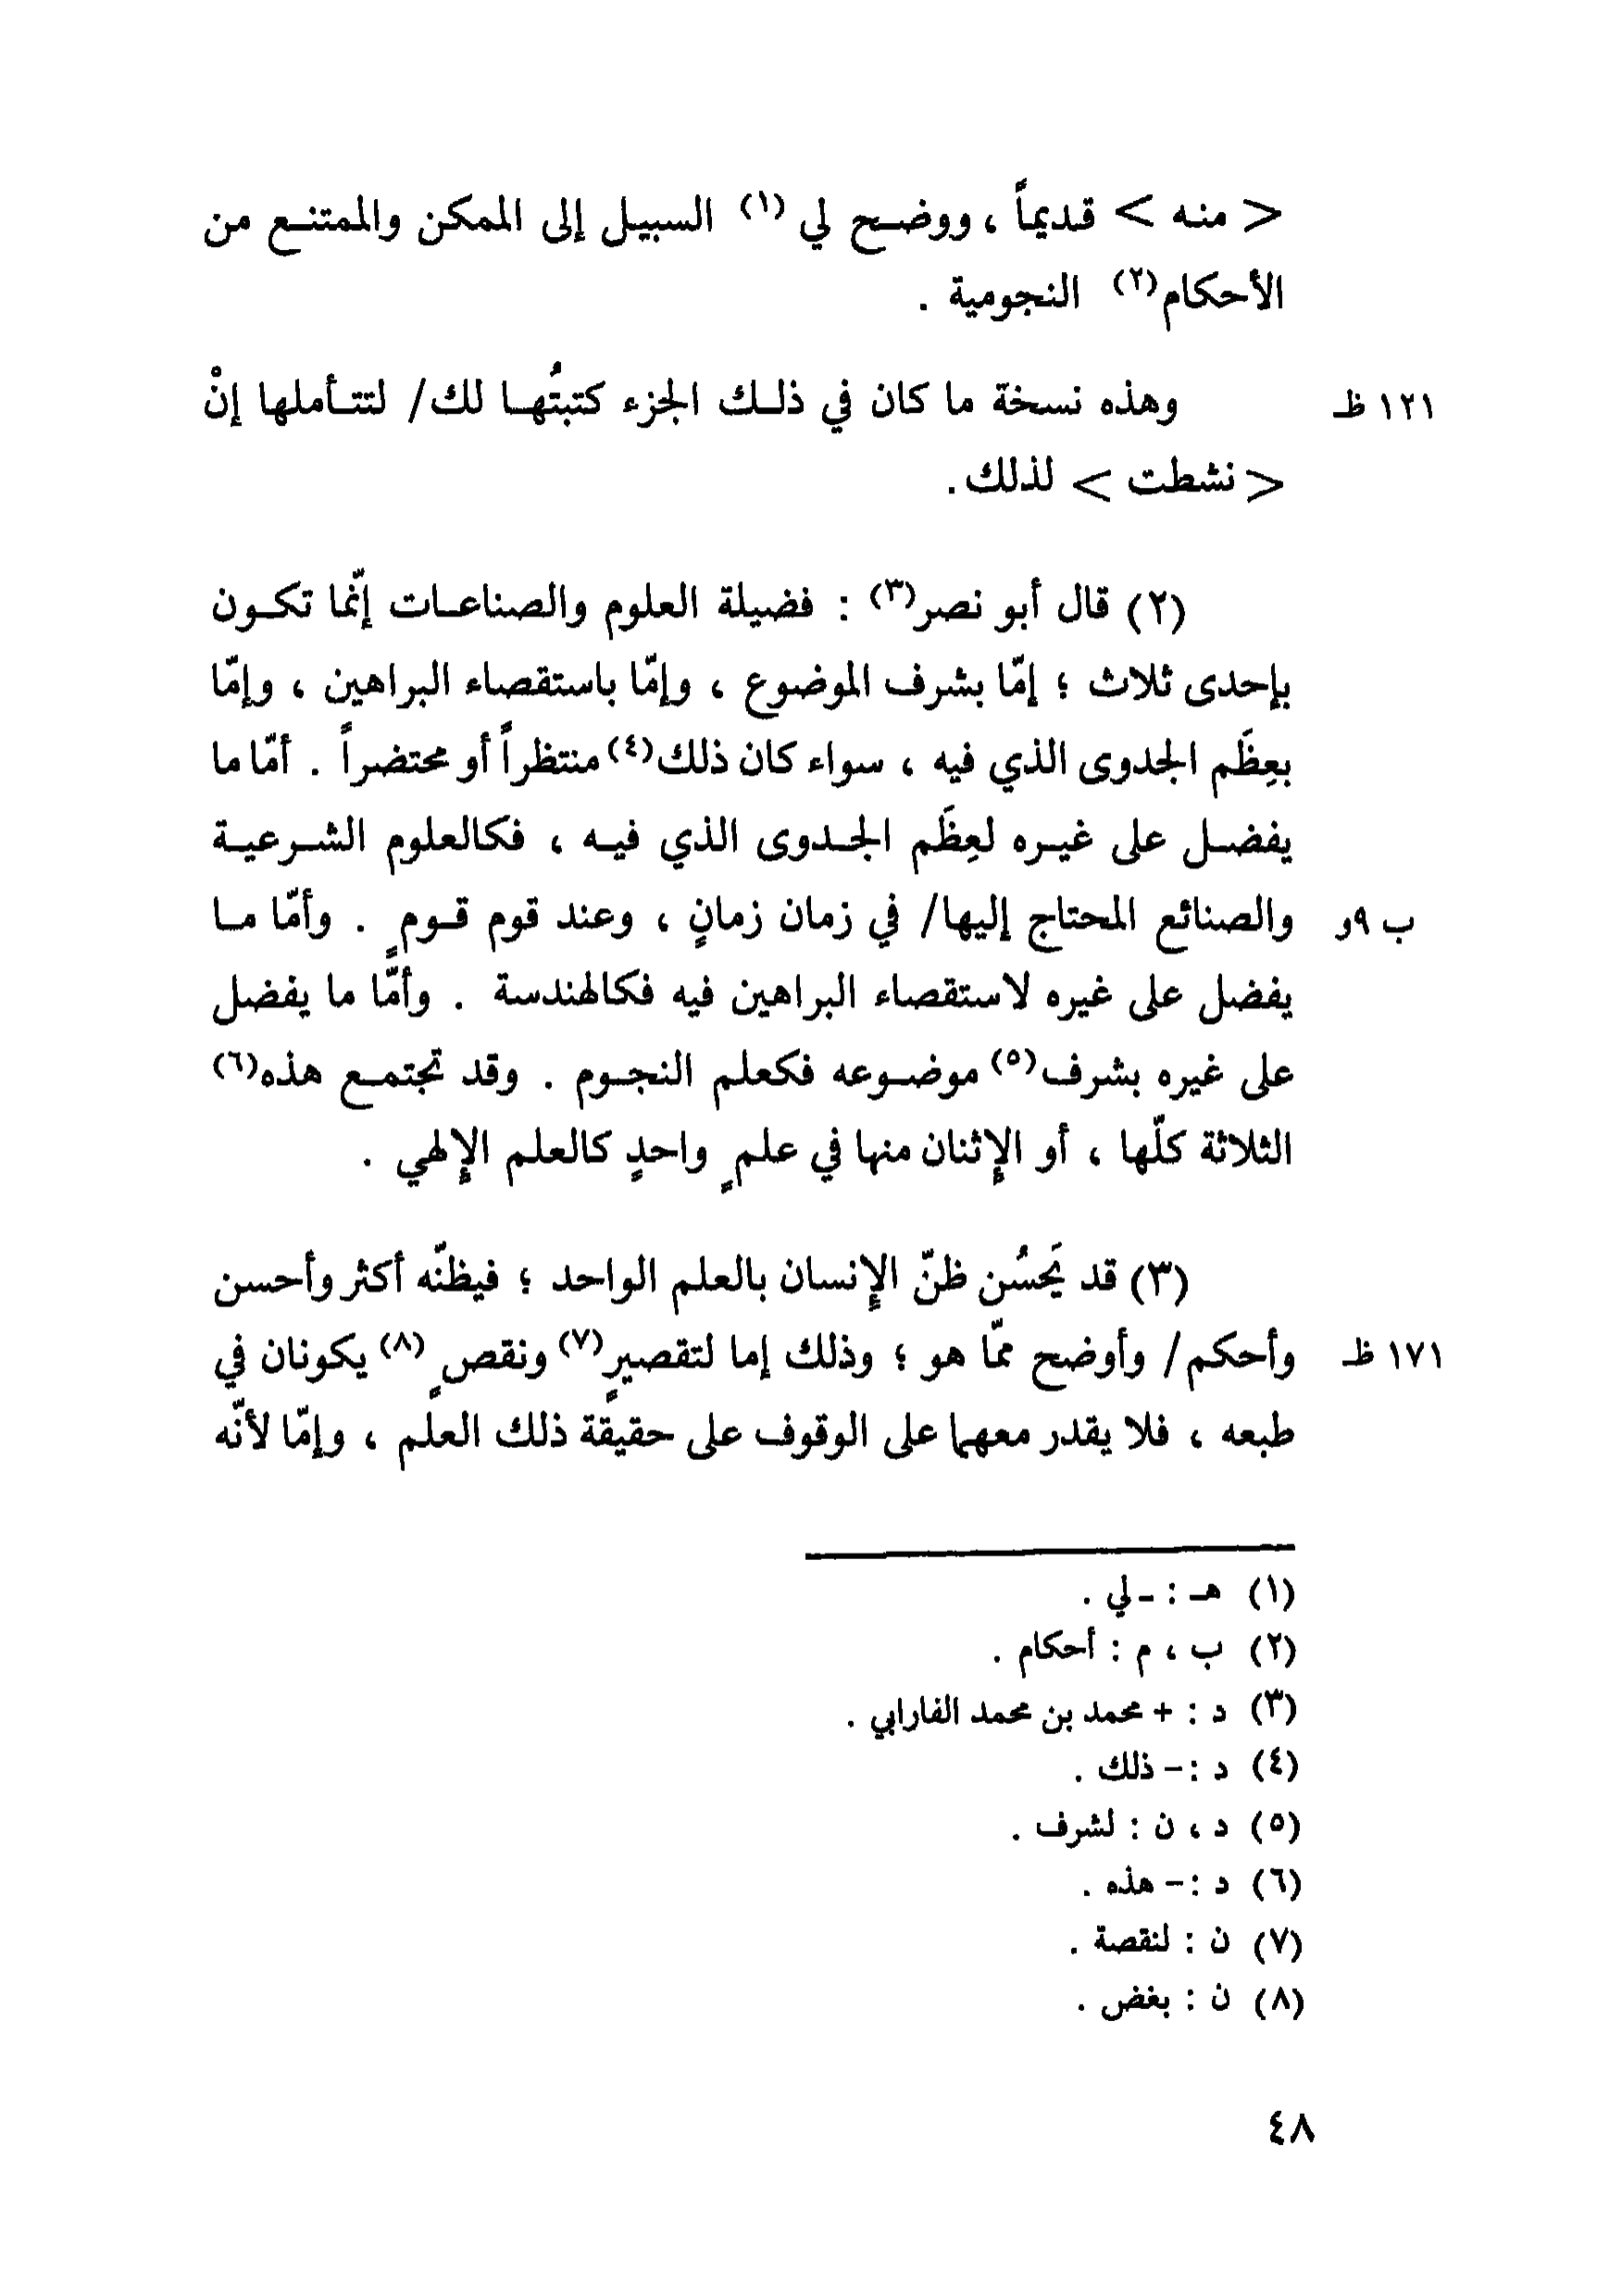 < منه > قديماً ، ووضح لي (١) السبيل إلى الممكن والممتنع من
الأحكام(٢) النجومية .
وهذه نسخة ما كان في ذلك الجزء كتبتُها لك/ لتتأملها إنْ ١٢١ ظ
< نشطت > لذلك .
(٢) قال أبو نصر(٣) : فضيلة العلوم والصناعات إنّما تكون
بإحدى ثلاث ؛ إمّا بشرف الموضوع ، وإمّا باستقصاء البراهين ، وإمّا
بعِظَم الجدوى الذي فيه ، سواء كان ذلك(٤) منتظراً أو محتضراً . أمّا ما
يفضل على غيره لعِظَم الجدوى الذي فيه ، فكالعلوم الشرعية
والصنائع المحتاج إليها/ في زمان زمانٍ ، وعند قوم قومٍ . وأمّا ما ب ٩و
يفضل على غيره لاستقصاء البراهين فيه فكالهندسة . وأمّا ما يفضل
على غيره بشرف(٥) موضوعه فكعلم النجوم . وقد تجتمع هذه(٦)
الثلاثة كلّها ، أو الإثنان منها في علمٍ واحدٍ كالعلم الإلهي .
(٣) قد يَحسُن ظنّ الإنسان بالعلم الواحد ؛ فيظنّه أكثر وأحسن
وأحكم/ وأوضح ممّا هو ؛ وذلك إما لتقصيرٍ(٧) ونقصٍ(٨) يكونان في ١٧١ ظ
طبعه ، فلا يقدر معهما على الوقوف على حقيقة ذلك العلم ، وإمّا لأنّه
(١) هـ : - لي .
(٢) ب ، م : أحكام .
(٣) د : + محمد بن محمد الفارابي .
(٤) د : - ذلك .
(٥) د ، ن : لشرف .
(٦) د : - هذه .
(٧) ن : لنقصة .
(٨) ن : بغض .
٤٨